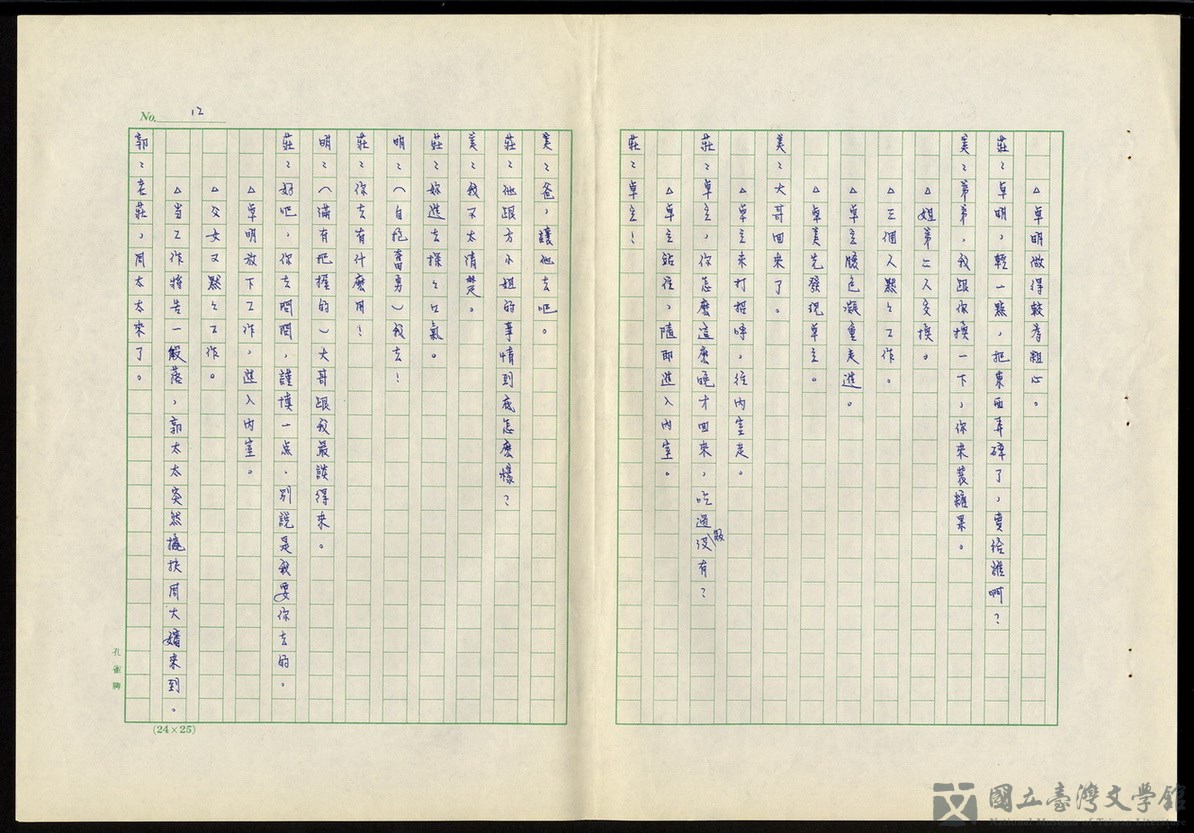 △卓明做得較為粗心。
莊：卓明，輕一點，把東西弄碎了，賣給誰啊？
美：弟弟，我跟你換一下，你來裝糖果。
△姐弟二人交換。
△三個人默々工作。
△卓立臉色凝重走進。
△卓美先發現卓立。
美：大哥回來了。
△卓立未打招呼，往內室走。
莊：卓立，你怎麼這麼晚才回來，吃過飯沒有？
△卓立站住，隨即進入內室。
莊：卓立！
No. 12
美：爸，讓他去吧。
莊：他跟方小姐的事情到底怎麼樣？
美：我不太清楚。
莊：妳進去探々口氣。
明：（自告奮勇）我去！
莊：你去有什麼用！
明：（滿有把握的）大哥跟我最談得來。
莊：好吧，你去問問，謹慎一点，別說是我要你去的。
△卓明放下工作，進入內室。
△父女又默々工作。
△当工作將告一段落，郭太太突然攙扶周大嬸來到。
郭：老莊，周太太來了。
孔雀牌
(24×25)
國立臺灣文學館
National Museum of Taiwan Literature